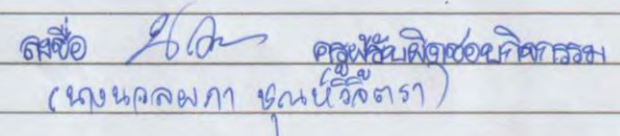 ลงชื่อ ครูผู้รับผิดชอบกิจกรรม
(นางนวลนภา ชุณห์วิจิตรา)